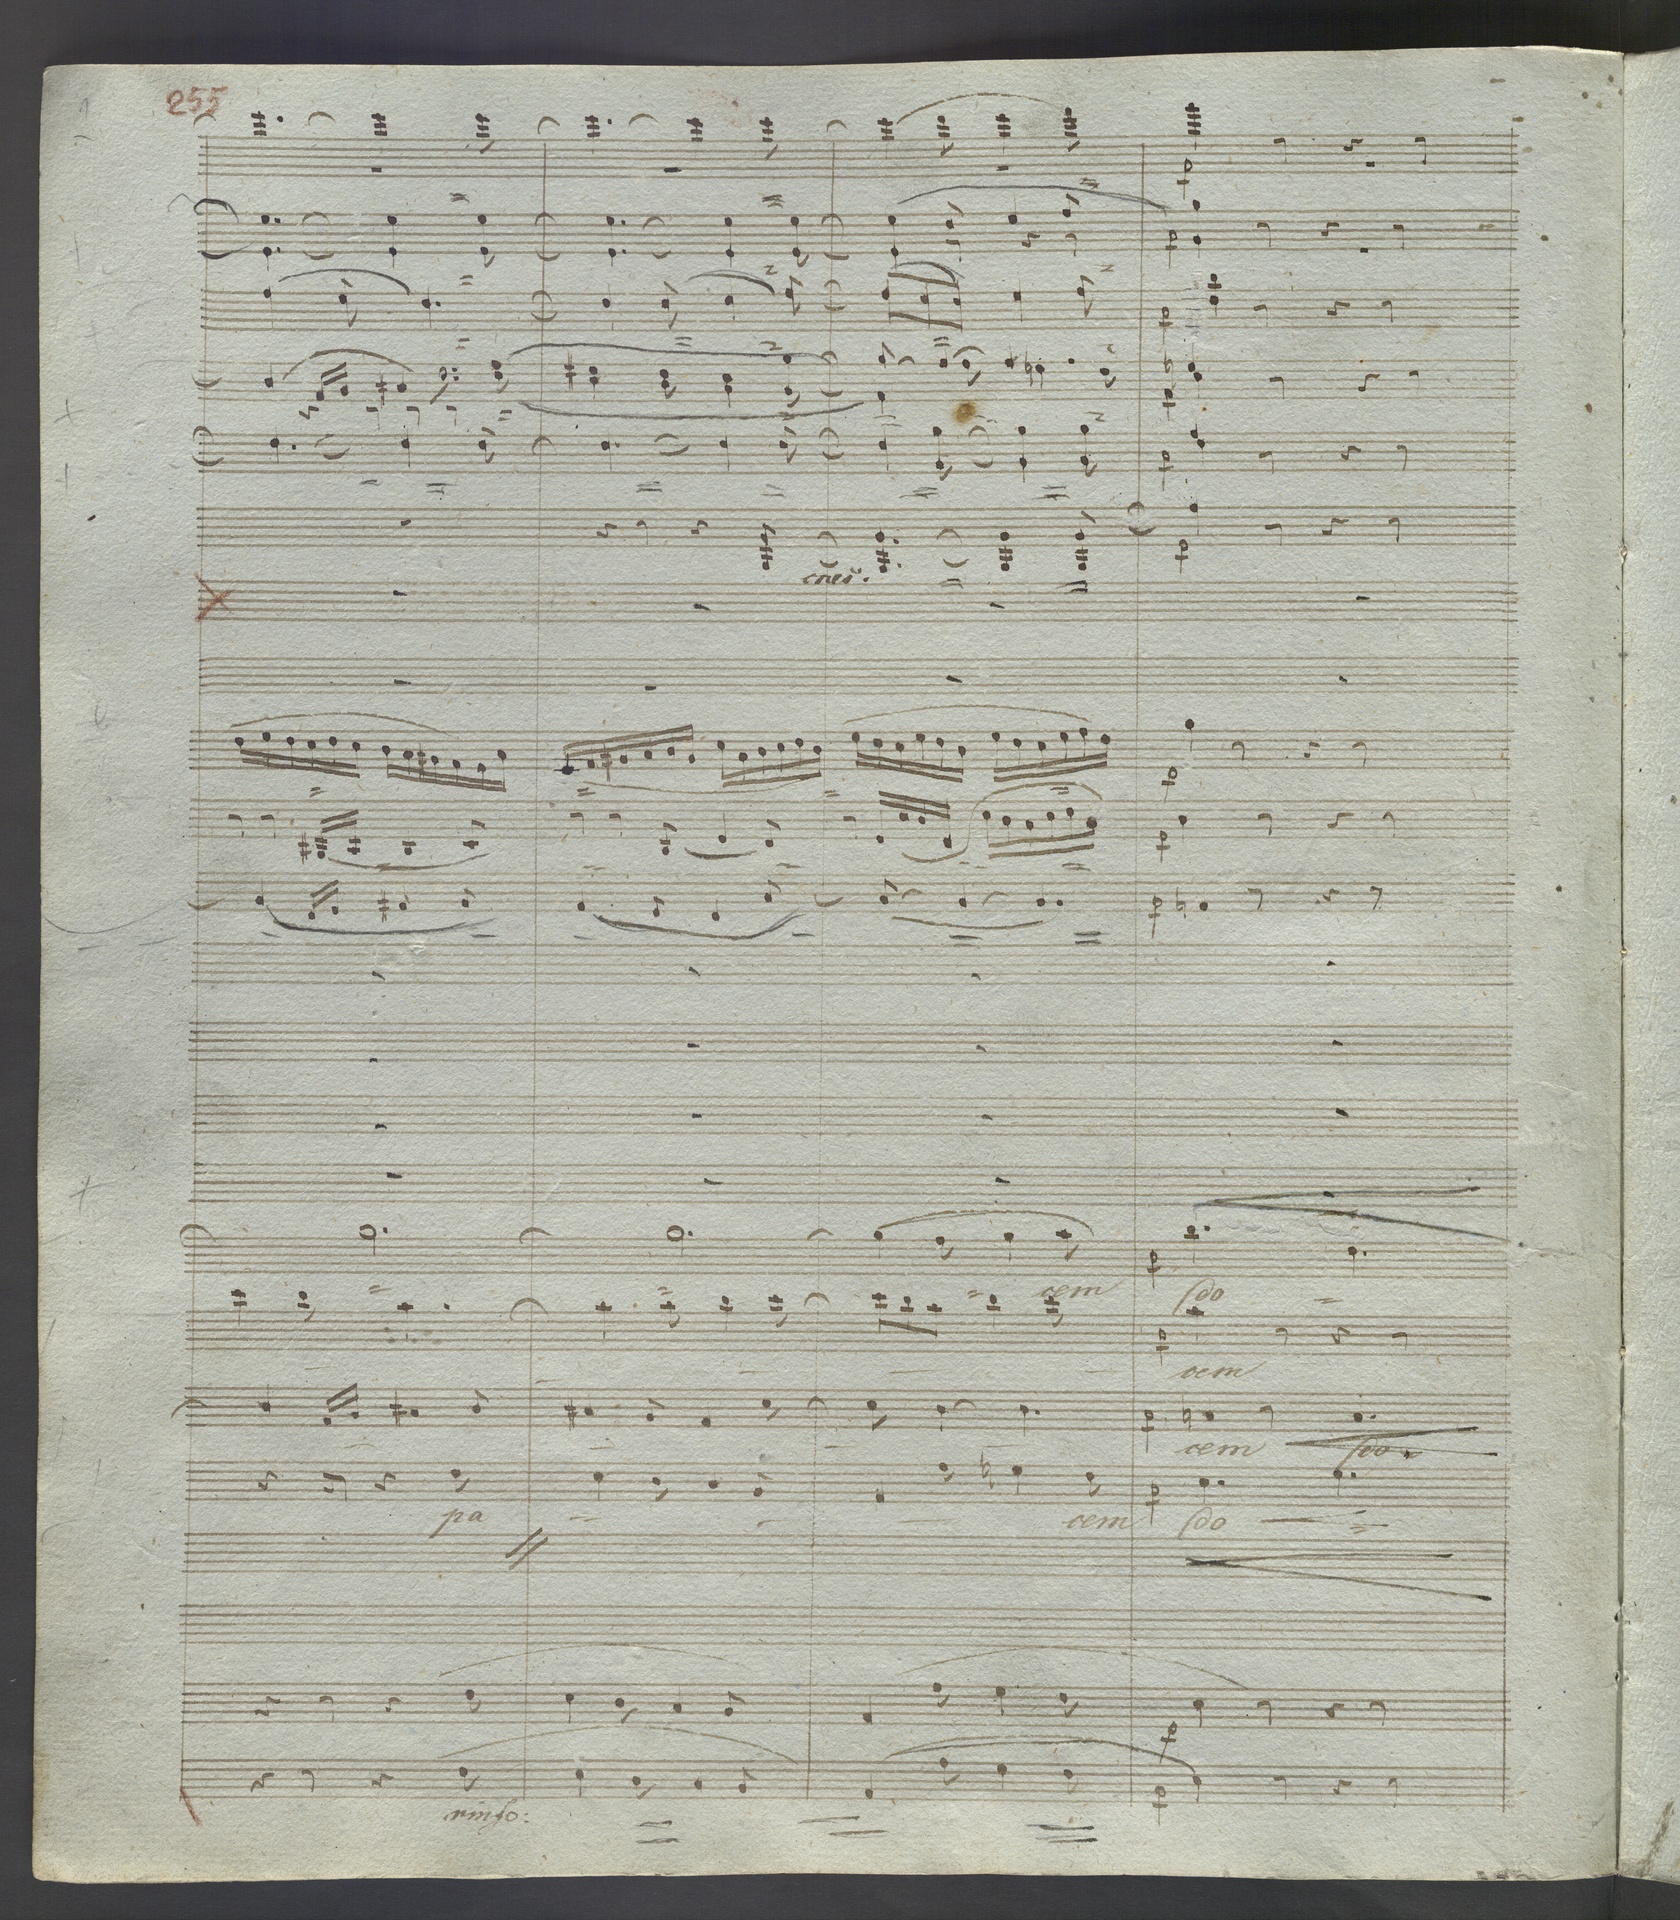 255
cres.
cem do
cem
cem do
pa cem do
rinfo: